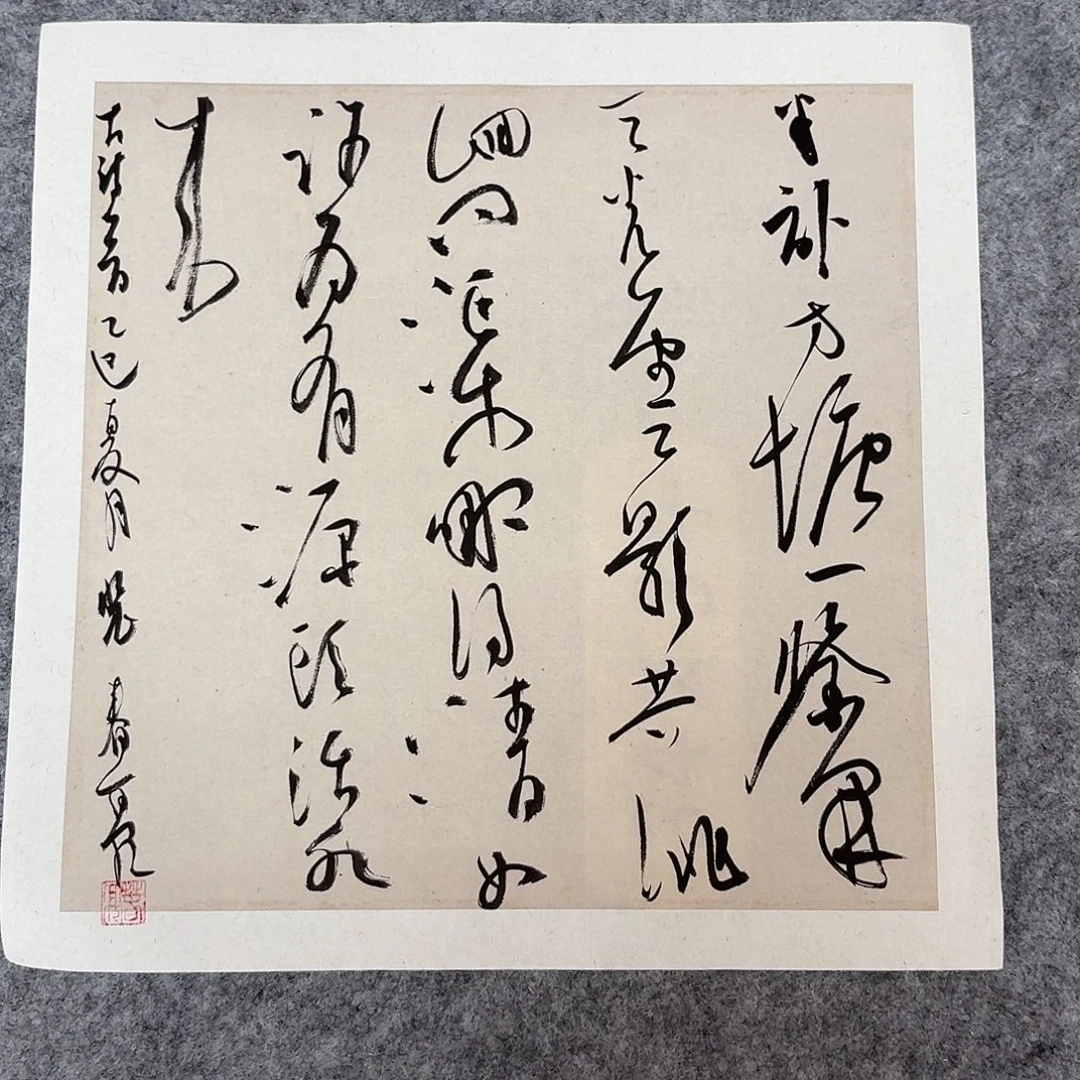 半畝方塘一鑒開
天光雲影共徘
徊問渠那得清如
許為有源頭活水
來
古詩一首 乙巳夏月 春